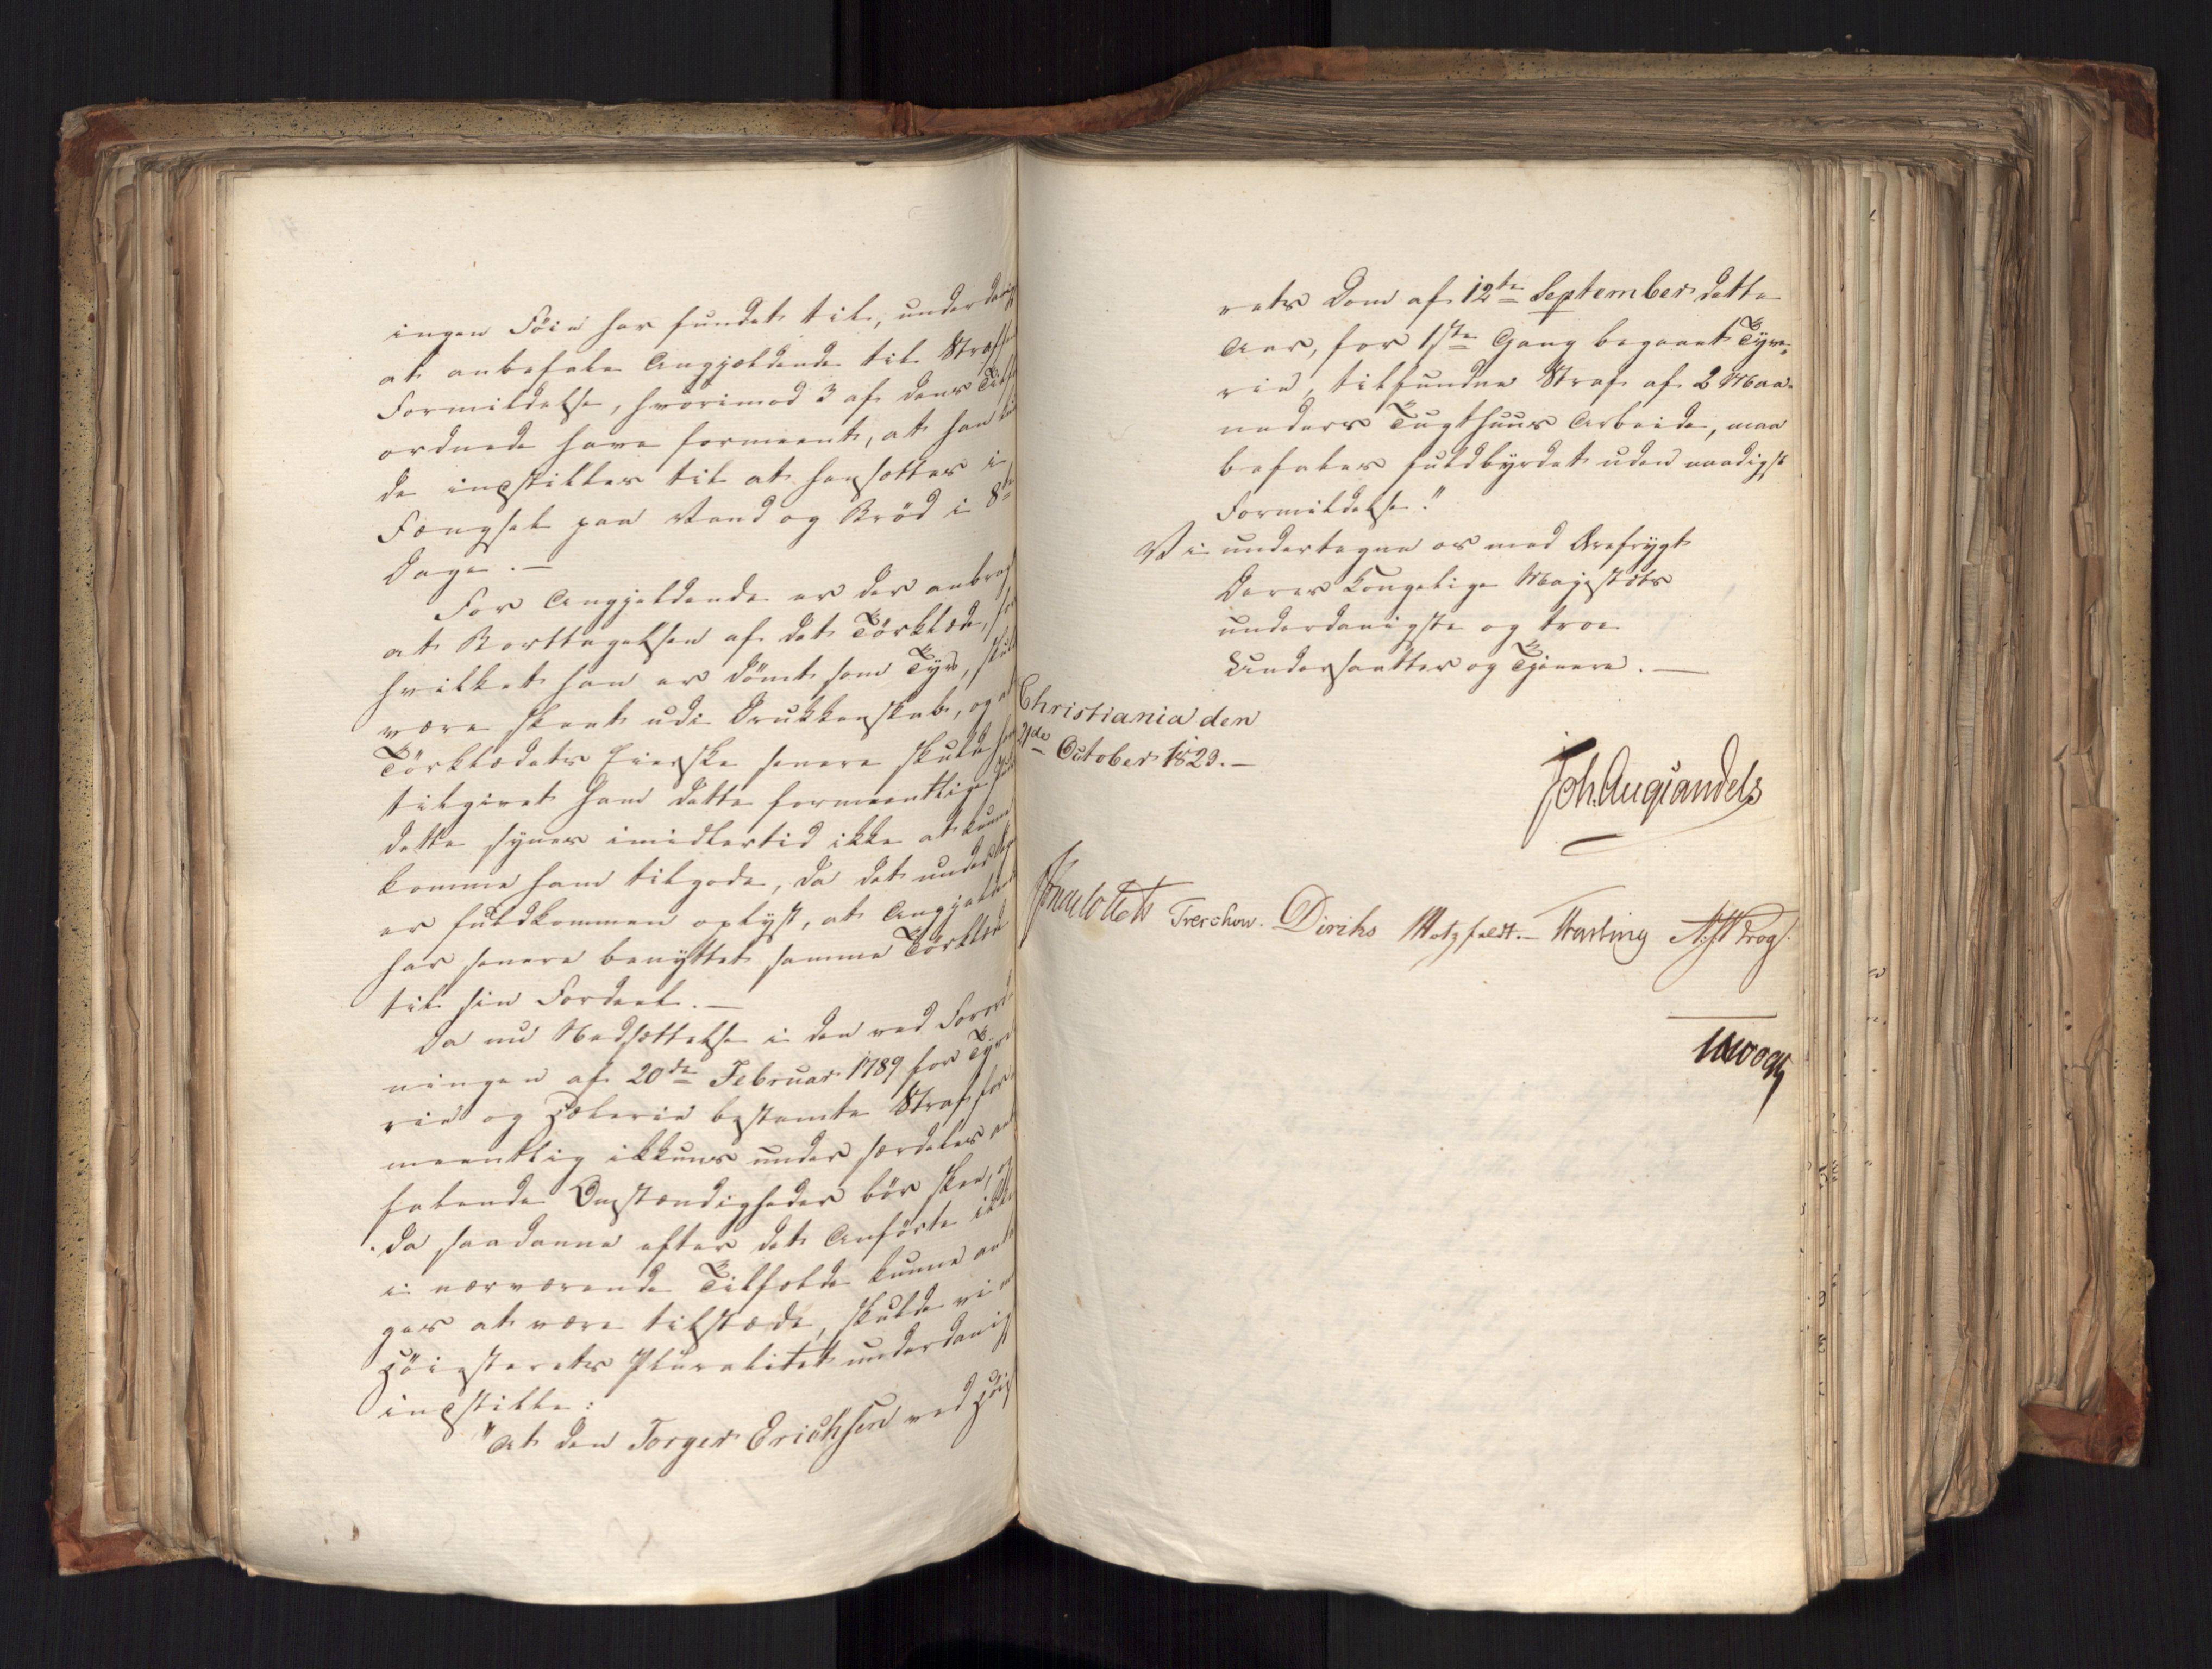 ingen Föie har fundet til, underdanigst
at anbefale Angjældende til Straffens
Formildelse, hvorimod 3 af dens Til-
ordnede have formeent, at han bur-
de indstilles til at hensættes i
Fængsel paa Vand og Bröd i 8te
Dage. —
For Angjeldende er der anbragt
at Borttagelsen af det Törklæde, for
hvilket han er dömt som Tyv, skulde
være skeet udi Drukkenskab, og at
Törklædets Eierske senere skulde have
tilgivet ham dette formeentlige
dette synes imidlertid ikke at kunne
komme ham tilgode, da det under Sagen
er fuldkommen oplyst, at Angjeldende
har senere benyttet samme Törklæde
til sin Fordeel. —
Da nu Nedsættelse i den ved Forord-
ningen af 20de Februar 1789 for Tyve-
rie og Hælerie bestemte Straf for-
meentlig ikkuns under særdeles anbe-
falende Omstændigheder bör skee, og
da saadanne efter det Anförte ikke
i nærværende Tilfælde kunne anta-
ges at være tilstæde, skulde vi med
Höiesterets Pluralitet underdanigst
indstille:
"At den Torger Erichsen ved Höieste-
rets Dom af 12te September dette
Aar, for 1ste Gang begaaet Tyve-
rie, tilfundne Straf af 2 Maa-
neders Tugthuus Arbeide, maa
befales fuldbyrdet uden naadigst
Formildelse."
Vi undertegne os med Ærefrygt
Deres Kongelige Majestæts
underdanigste og troe
Undersaatter og Tjenere. —
Christiania den
21de October 1823. —
Joh. Aug: Sandels
Jonas Collett Treschow. Diriks Motzfeldt. — Fasting A. J. W. Krog